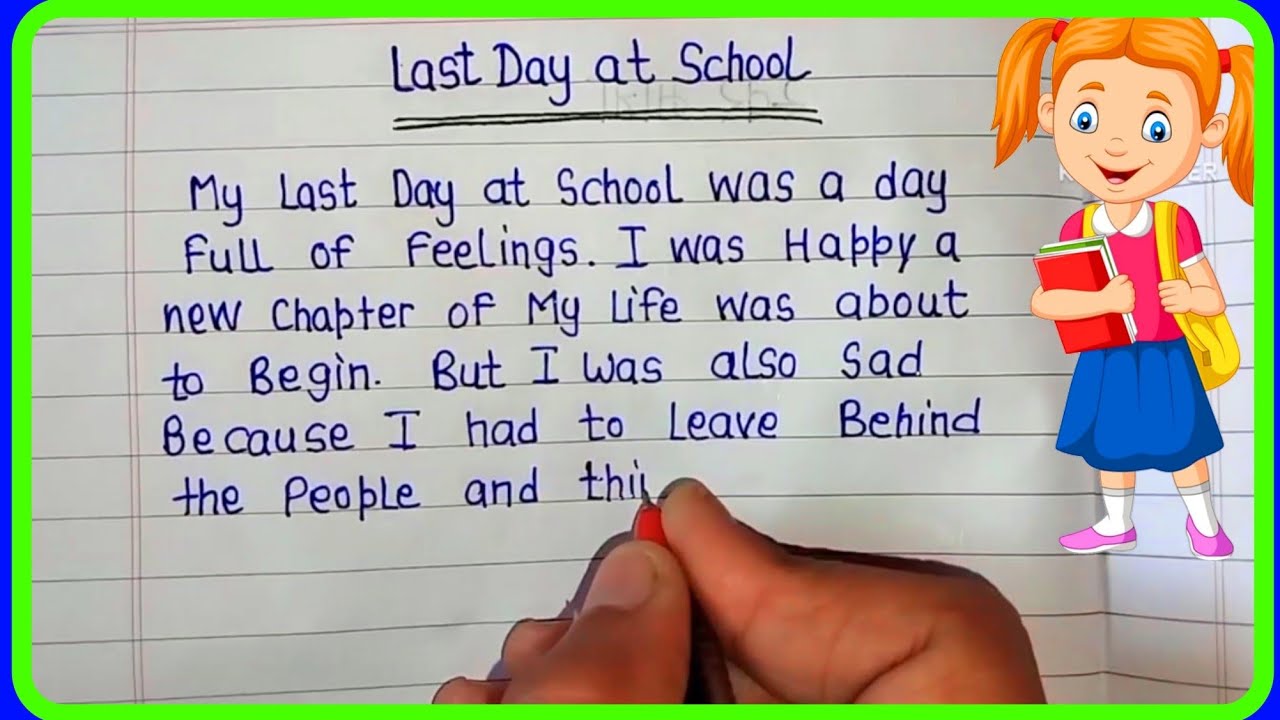 Last Day at School
My Last Day at School was a day
Full of Feelings. I was Happy a
new Chapter of My Life was about
to Begin. But I was also Sad
Because I had to Leave Behind
the People and thi